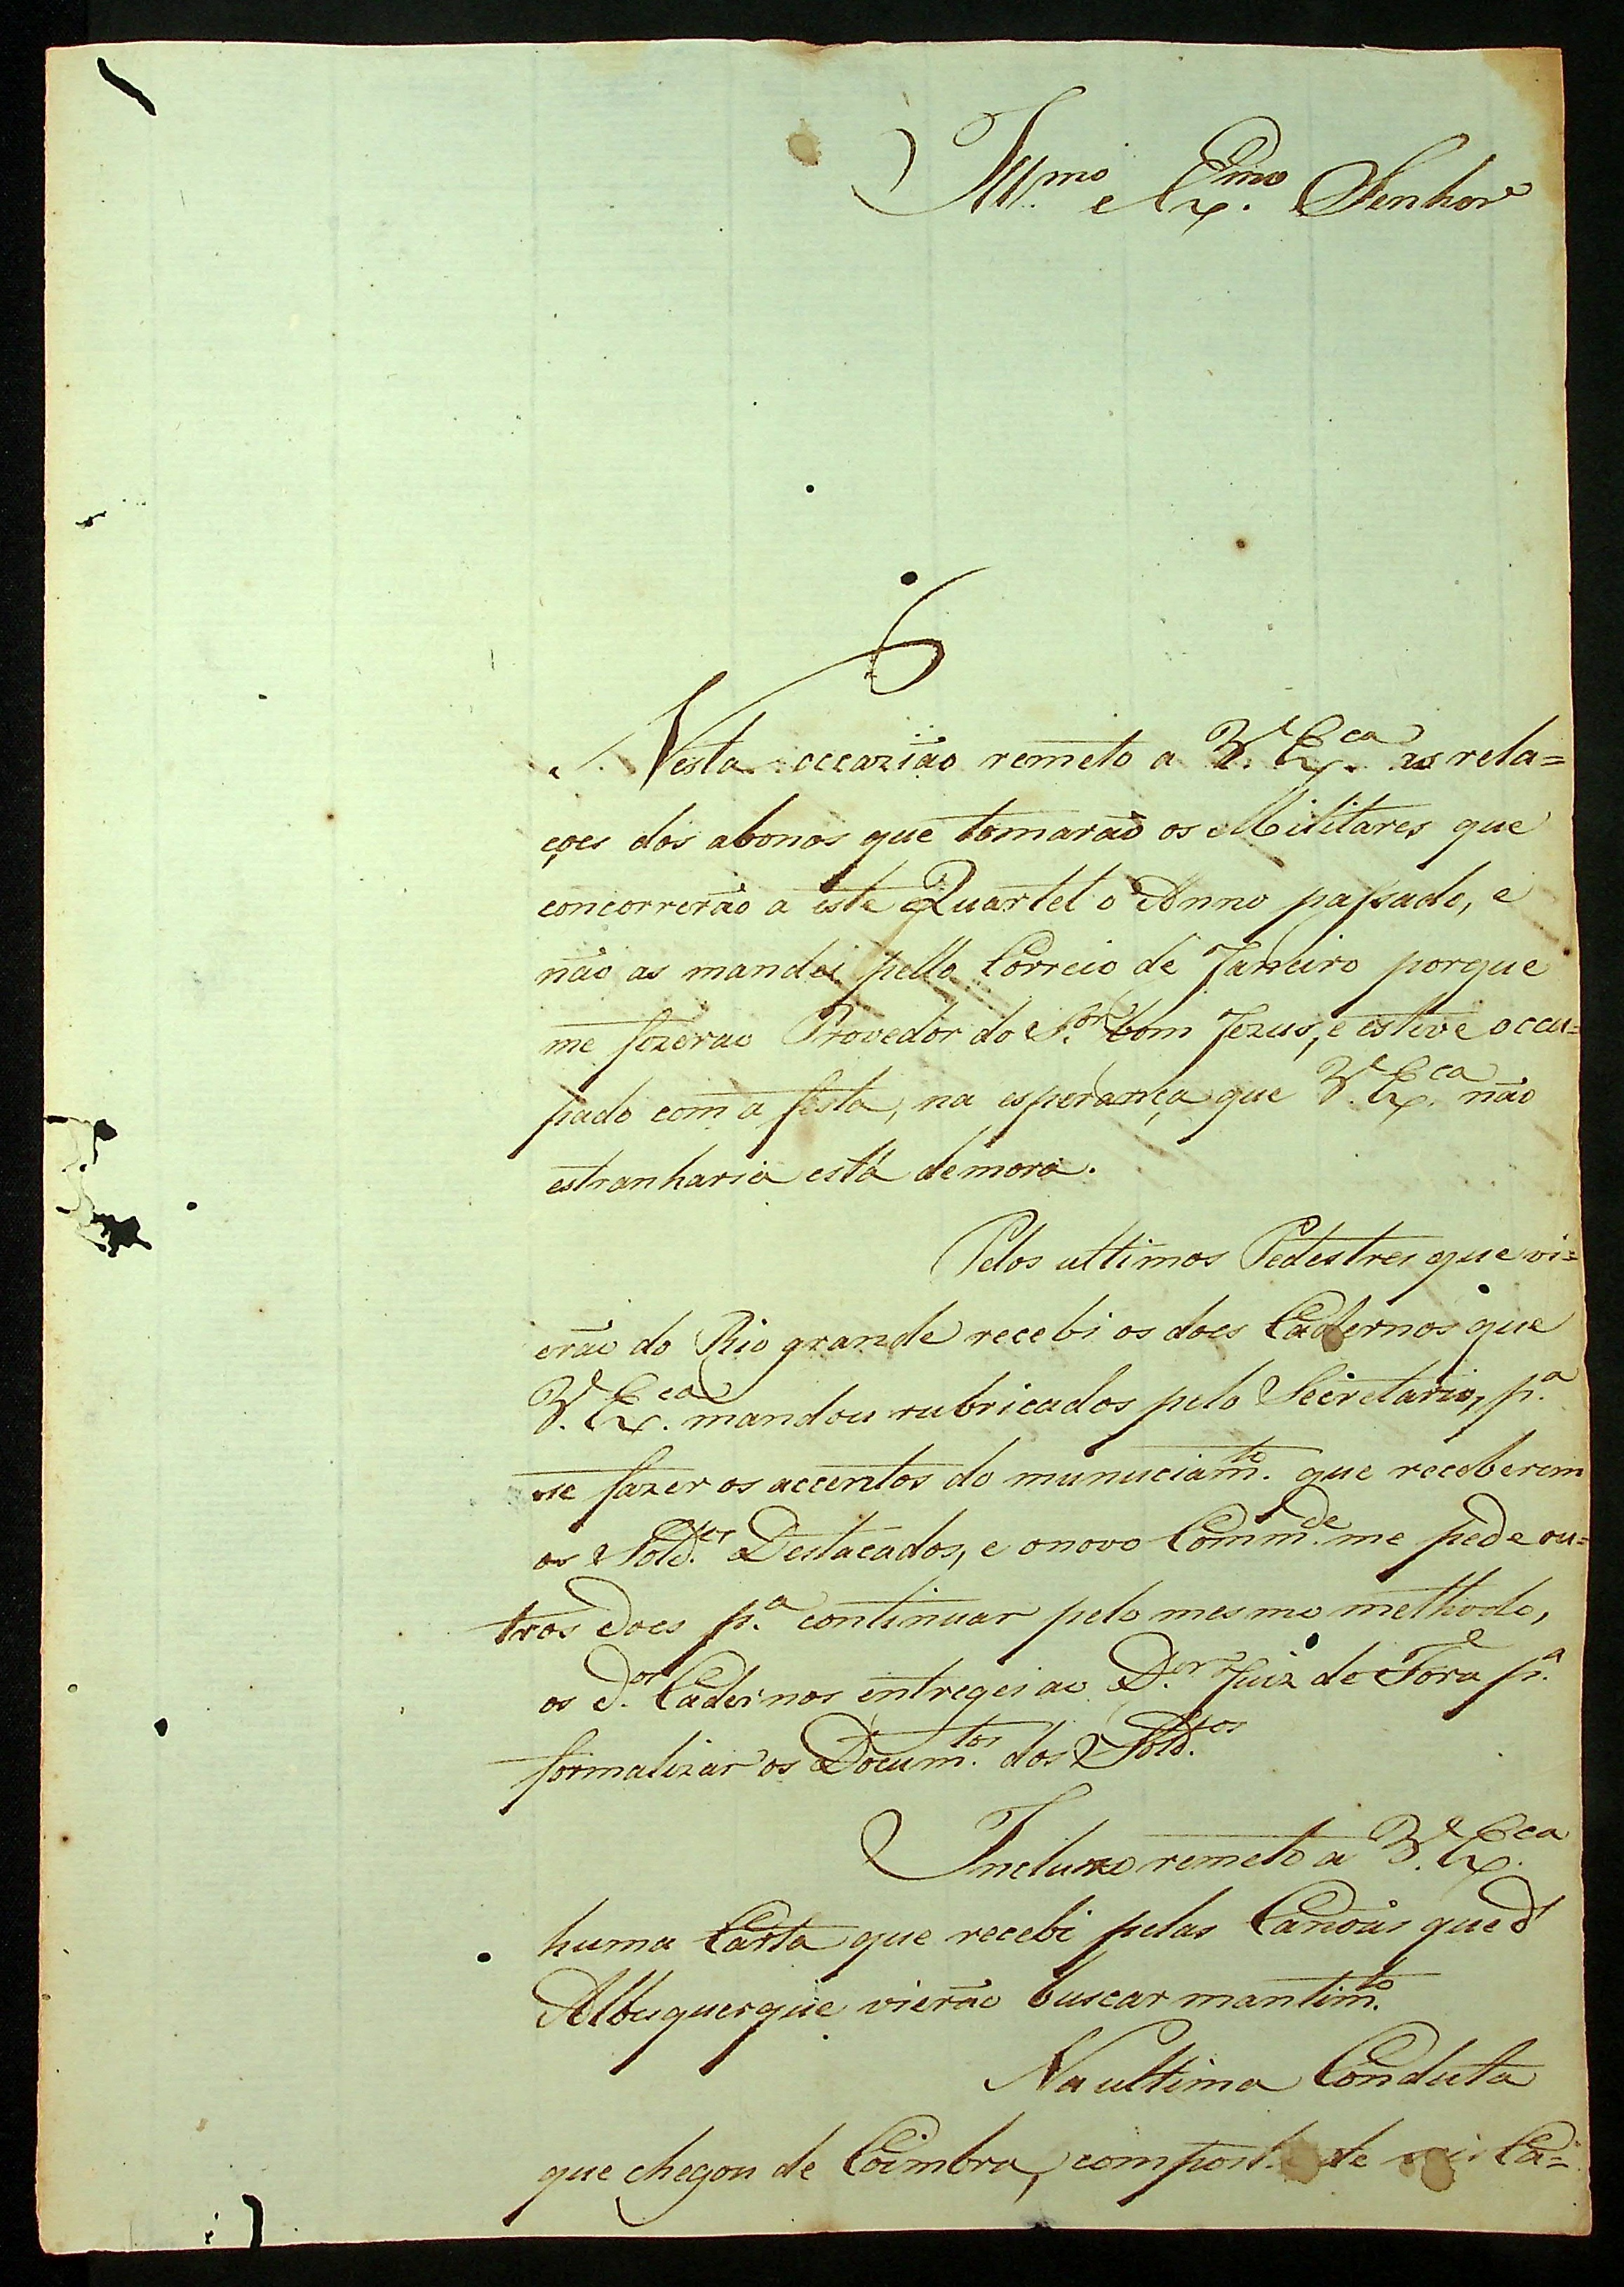 Ill.mo e Ex.mo Senhor
Nesta occazião remeto a V. Ex.ca as rela=
çoes dos abonos que tomarão os Militares que
concorrerão a este Quartel o Anno passado, e
não as mandei pello Correio de Janeiro porque
me fizerao Provedor do S.or bom Jezus, e estive occu=
pado com a festa, na esperança que V. Ex.ca não
estranharia está demora.
Pelos ultimos Pedestres que vi=
erão do Rio grande recebi os does Cadernos que
V. Ex.ca mandou rubricados pelo Secretario, p.a
se fazer os accentos do munuciam.to que receberem
os Sold.os Destacados, e o novo Comm.de me pede ou=
tros does p.a continuar pelo mesmo methodo,
os d.os Cadernos entregei ao D.or Juiz de Fora p.a
formalizar os Docum.tos dos Sold.os
Incluzo remeto a V. Ex.ca
huma Carta que recebi pelas Canoas que d'
Albuquerque vierão buscar mantim.to
Na ultima Conduta
que chegou de Coimbra, compost de seis Ca=